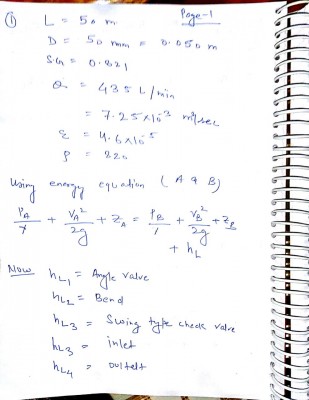 Page-1
① L = 50 m
D = 50 mm = 0.050 m
S.G = 0.821
Q = 435 L/min
= 7.25×10⁻³ m³/sec
ε = 4.6×10⁻⁵
ρ = 820
Using energy equation (A & B)
P_A/γ + V_A²/2g + Z_A = P_B/γ + V_B²/2g + Z_B
+ h_L
Now h_L1 = Angle valve
h_L2 = Bend
h_L3 = Swing type check valve
h_L3 = inlet
h_L4 = oultelt